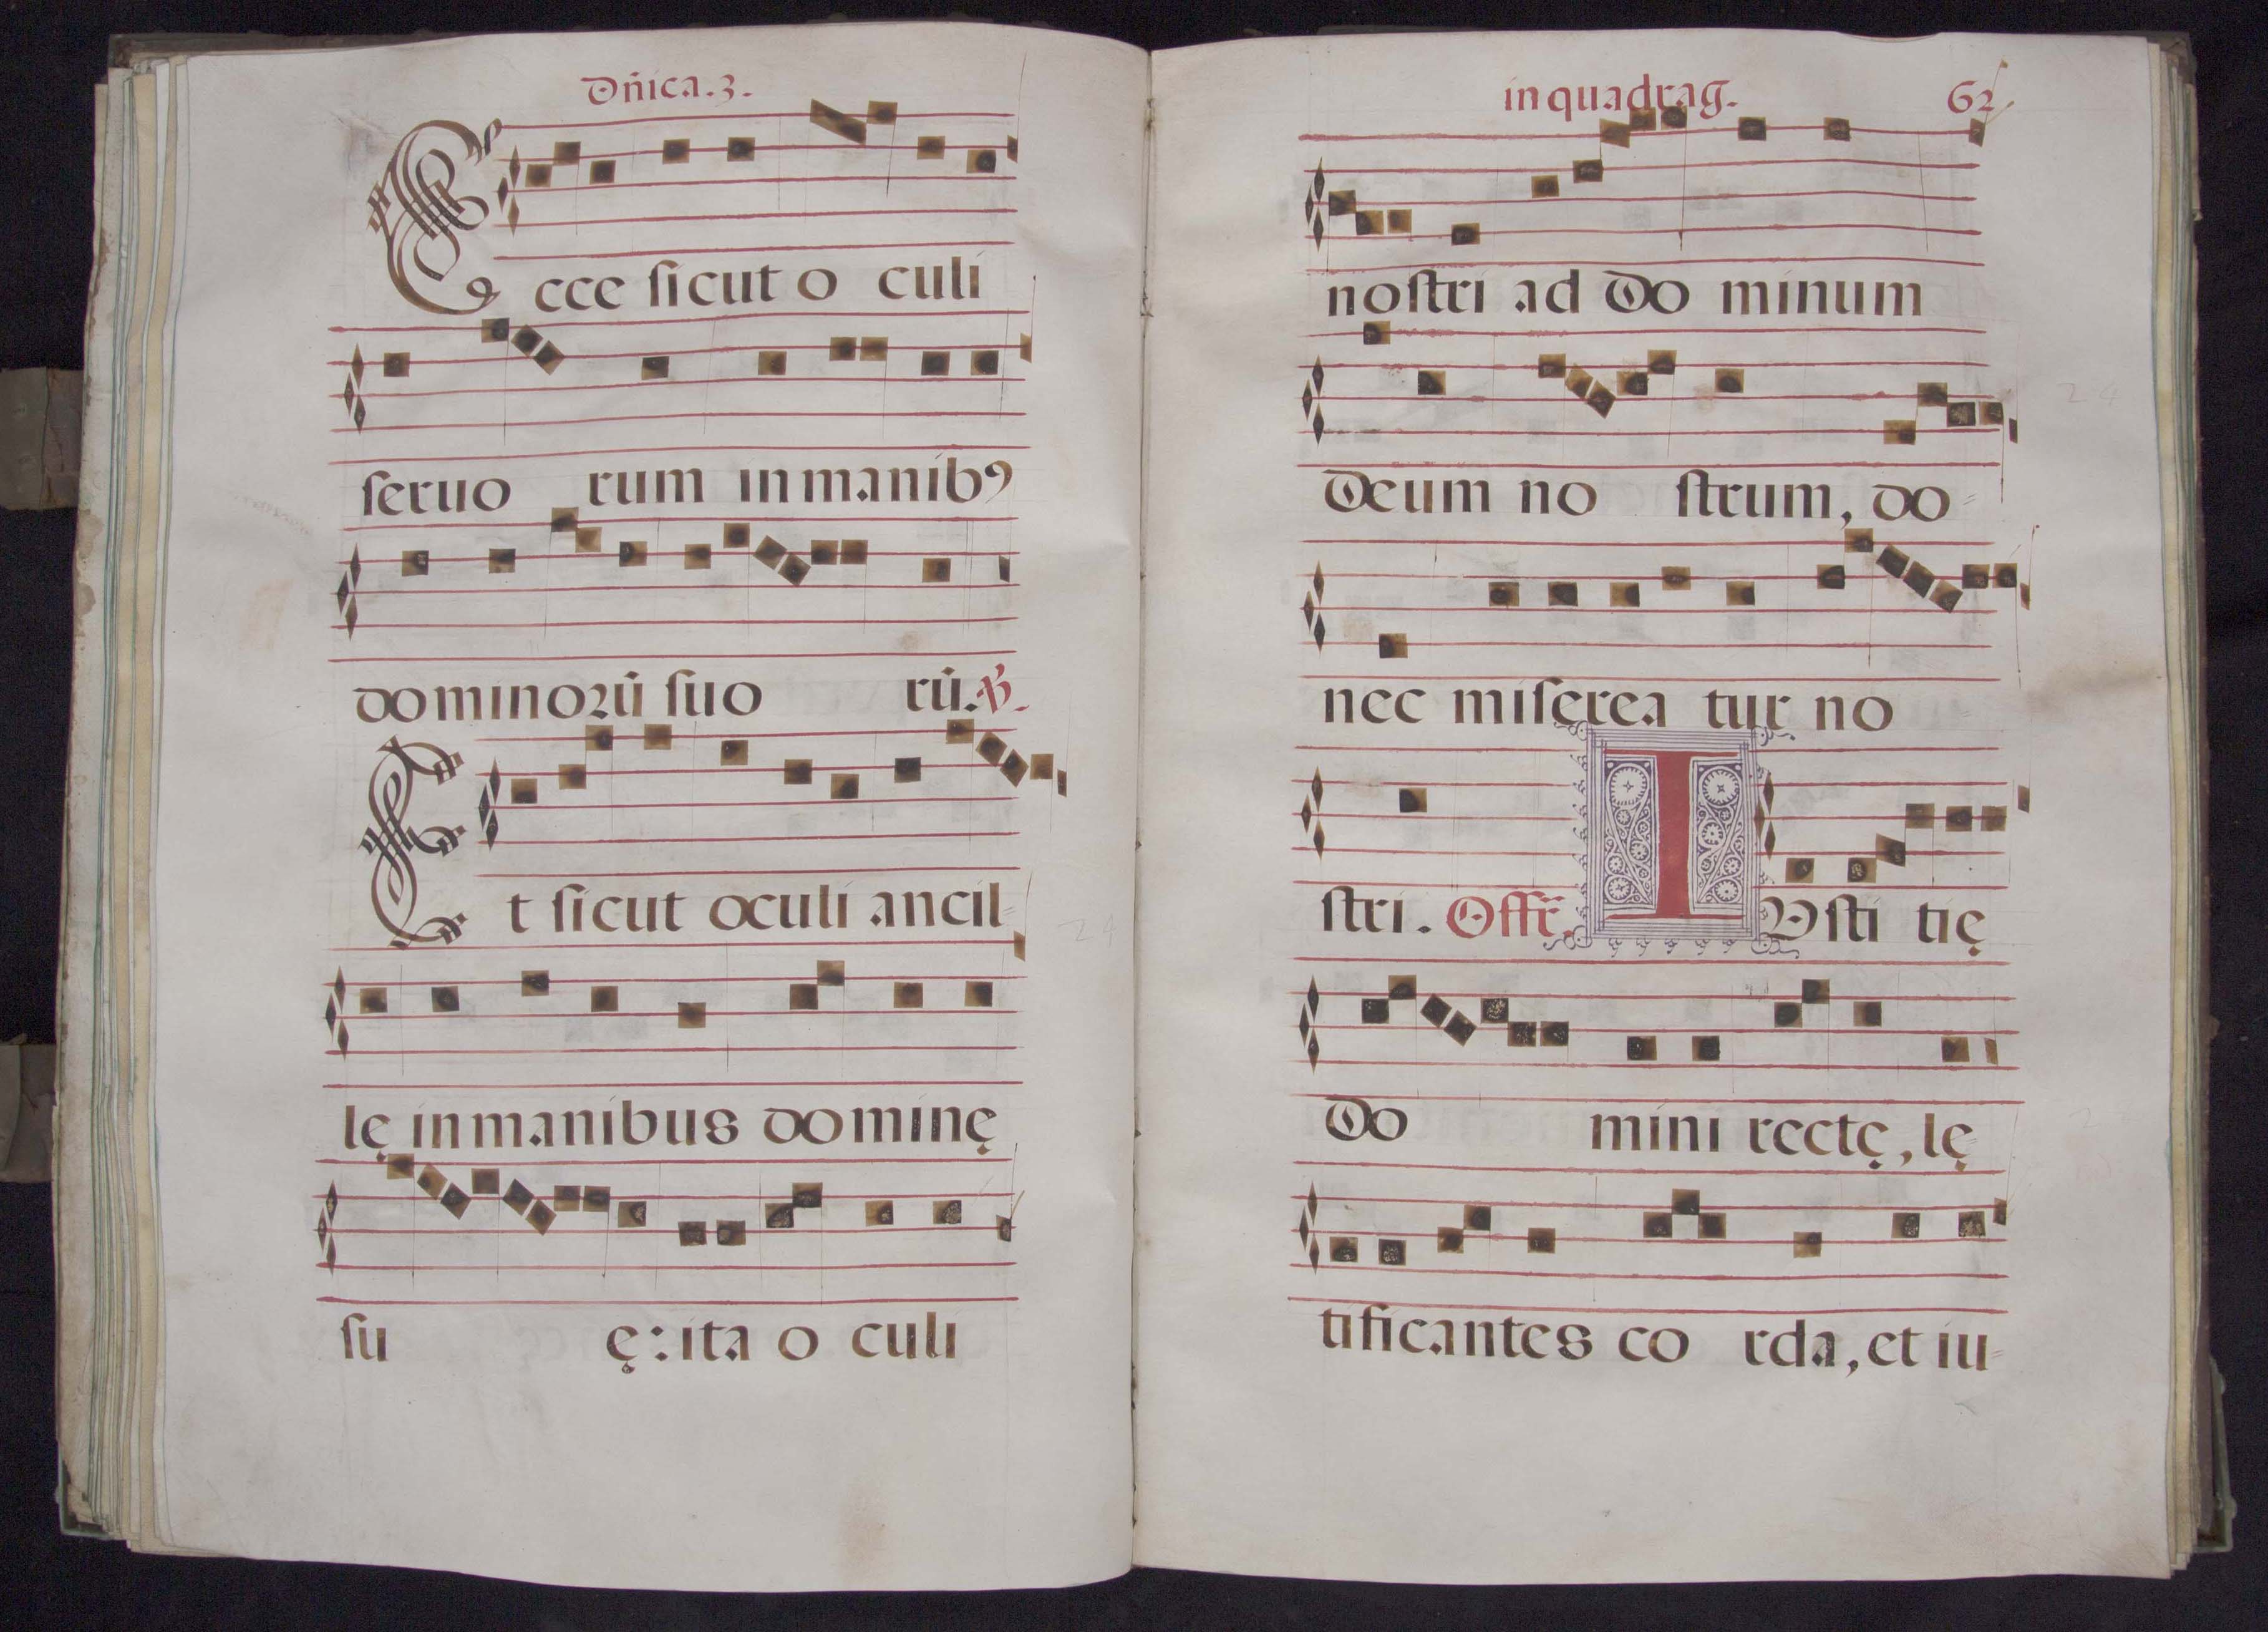 Dn̄ica.3.
Ecce ſicut o culi
ſeruo rum in manibꝯ
dominoꝛū ſuo rū. ℣.
Et ſicut oculi ancil=
lę in manibus dominę
ſu ę: ita o culi
in quadrag. 62
noſtri ad Do minum
Deum no ſtrum, do=
nec miſerea tur no
ſtri. Offr̄. IVſti tię
Do mini rectę, lę
tificantes co rda, et iu=
24
24